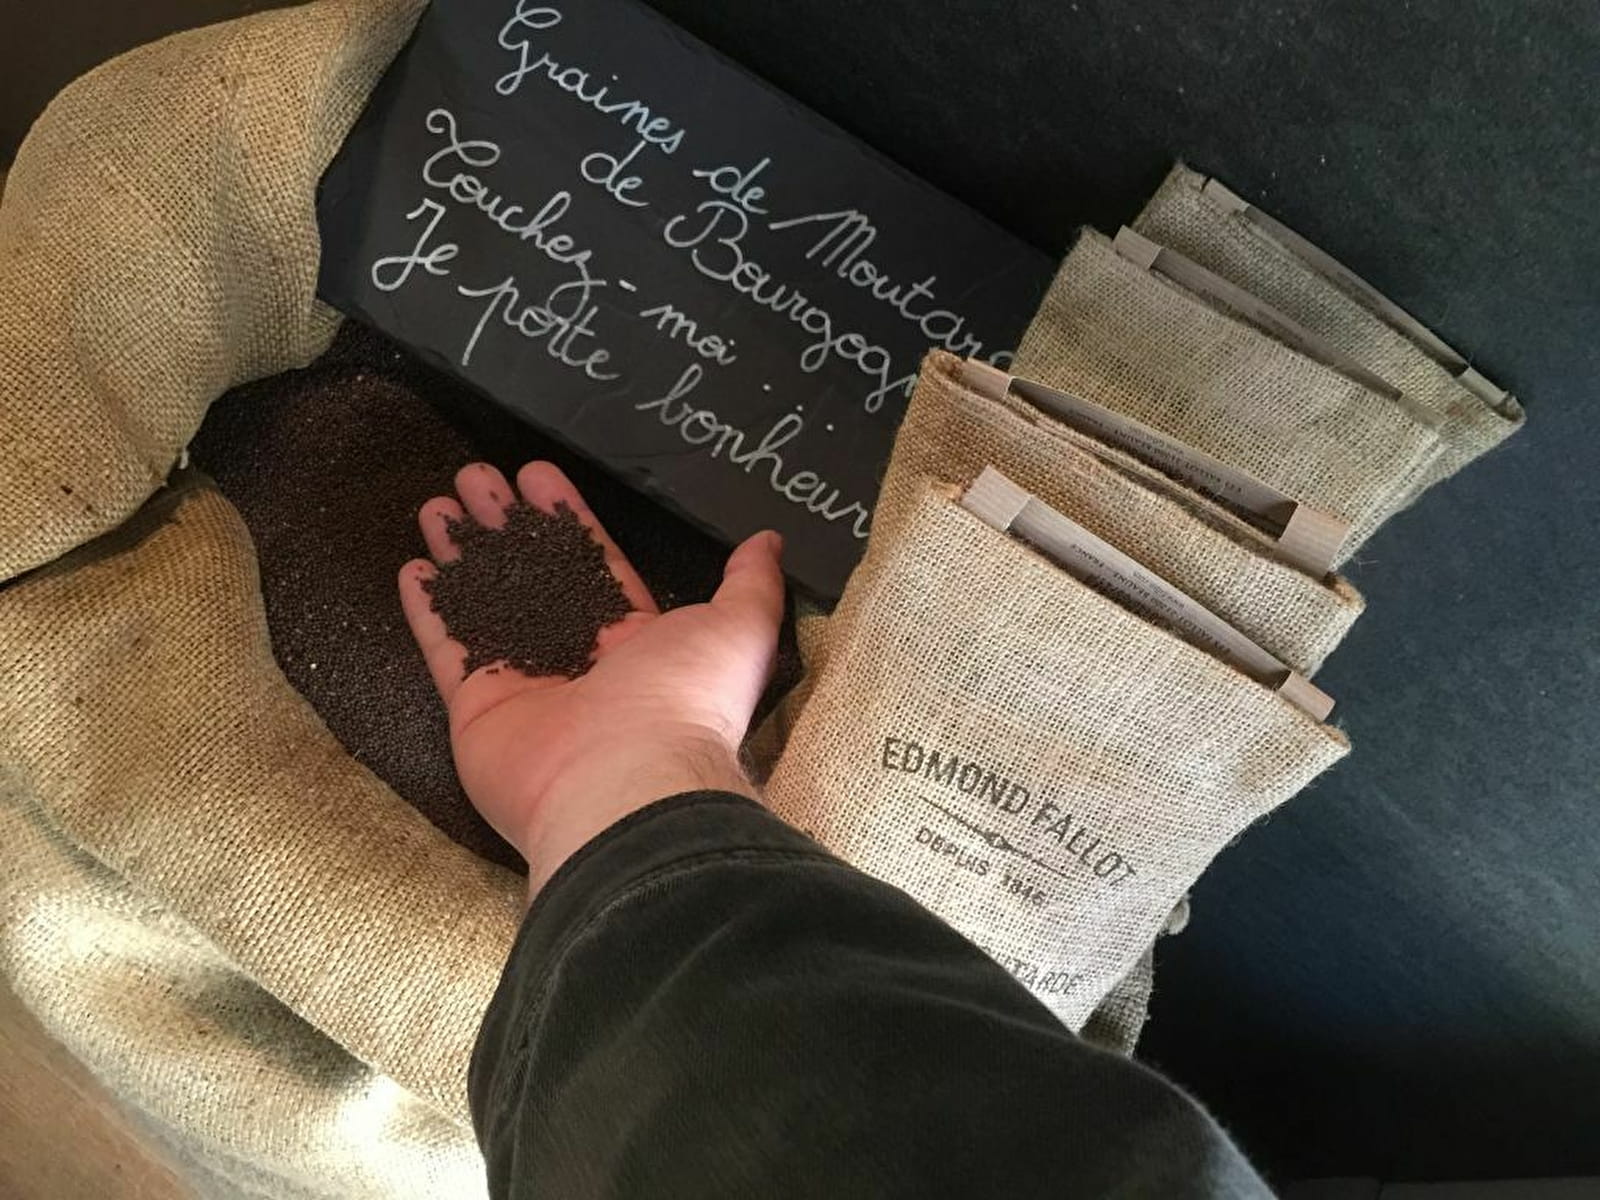 Graines de Moutard
de Bourgog
Touchez-moi :
Je porte bonheur
EDMOND FALLOT
DEPUIS 1840
TARDE